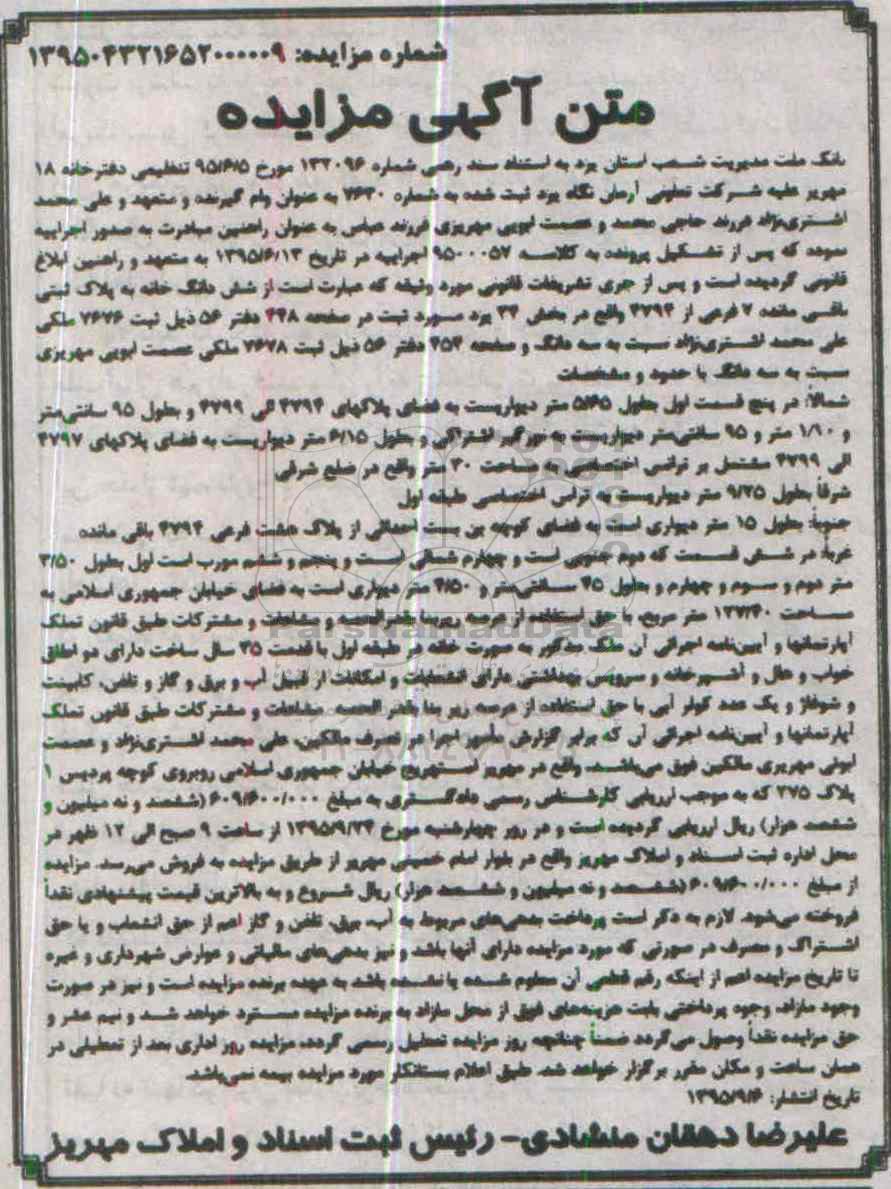 شماره مزایده: ۱۳۹۵۰۴۳۲۱۶۵۲۰۰۰۰۰۹
متن آگهی مزایده
بانک ملت مدیریت شعب استان یزد به استناد سند رهنی شماره ۱۳۲۰۹۶ مورخ ۹۵/۶/۵ تنظیمی دفترخانه ۱۸
مهریز علیه شرکت تعاونی آرمان نگاه یزد ثبت شده به شماره ۳۶۳۰ به عنوان وام گیرنده و متعهد و علی محمد
اشتری‌نژاد فرزند حاجی محمد و عصمت ابویی مهریزی فرزند عباس به عنوان راهنین مبادرت به صدور اجراییه
نموده که پس از تشکیل پرونده به کلاسه ۹۵۰۰۰۵۷ اجراییه در تاریخ ۱۳۹۵/۶/۱۳ به متعهد و راهنین ابلاغ
قانونی گردیده است و پس از جری تشریفات قانونی مورد وثیقه که عبارت است از شش دانگ خانه به پلاک ثبتی
باقی مانده ۷ فرعی از ۴۷۹۴ واقع در بخش ۳۴ یزد مورد ثبت در صفحه ۴۴۸ دفتر ۵۶ ذیل ثبت ۷۶۷۶ ملکی
علی محمد اشتری‌نژاد نسبت به سه دانگ و صفحه ۴۵۴ دفتر ۵۶ ذیل ثبت ۷۶۷۸ ملکی عصمت ابویی مهریزی
نسبت به سه دانگ با حدود و مشخصات
شمالاً: در پنج قسمت اول بطول ۵/۶۵ متر دیواریست به فضای پلاکهای ۴۷۹۴ الی ۴۷۹۹ و بطول ۹۵ سانتی‌متر
و ۱/۱۰ متر و ۹۵ سانتی‌متر دیواریست به نورگیر اشتراکی و بطول ۶/۱۵ متر دیواریست به فضای پلاکهای ۴۷۹۷
الی ۴۷۹۹ مشتمل بر تراس اختصاصی به مساحت ۳۰ متر واقع در ضلع شرقی
شرقاً بطول ۹/۲۵ متر دیواریست به تراس اختصاصی طبقه اول
جنوباً: بطول ۱۵ متر دیواری است به فضای کوچه بن بست احداثی از پلاک هشت فرعی ۴۷۹۴ باقی مانده
غرباً: در شش قسمت که دوم جنوبی است و چهارم شمالی است و پنجم و ششم مورب است اول بطول ۳/۵۰
متر دوم و سوم و چهارم و بطول ۴۵ سانتی‌متر و ۴/۵۰ متر دیواری است به فضای خیابان جمهوری اسلامی به
مساحت ۱۳۷/۴۰ متر مربع، با حق استفاده از عرصه زیربنا بقدرالحصه و مشاعات و مشترکات طبق قانون تملک
آپارتمانها و آیین‌نامه اجرائی آن ملک مذکور به صورت خانه در طبقه اول با قدمت ۳۵ سال ساخت دارای دو اطاق
خواب و هال و آشپزخانه و سرویس بهداشتی دارای انشعابات و امکانات از قبیل آب و برق و گاز و تلفن، کابینت
و شوفاژ و یک عدد کولر آبی با حق استفاده از عرصه زیر بنا بقدر الحصه مشاعات و مشترکات طبق قانون تملک
آپارتمانها و آیین‌نامه اجرائی آن که برابر گزارش مأمور اجرا در تصرف مالکین، علی محمد اشتری‌نژاد و عصمت
ابوئی مهریزی مالکین فوق می‌باشد. واقع در مهریز استهریج خیابان جمهوری اسلامی روبروی کوچه پردیس ۱
پلاک ۲۷۵ که به موجب ارزیابی کارشناس رسمی دادگستری به مبلغ ۶۰۹/۶۰۰/۰۰۰ (ششصد و نه میلیون و
ششصد هزار) ریال ارزیابی گردیده است و در روز چهارشنبه مورخ ۱۳۹۵/۹/۲۴ از ساعت ۹ صبح الی ۱۲ ظهر در
محل اداره ثبت اسناد و املاک مهریز واقع در بلوار امام خمینی مهریز از طریق مزایده به فروش می‌رسد. مزایده
از مبلغ ۶۰۹/۶۰۰/۰۰۰ (ششصد و نه میلیون و ششصد هزار) ریال شروع و به بالاترین قیمت پیشنهادی نقداً
فروخته می‌شود. لازم به ذکر است پرداخت بدهی‌های مربوط به آب، برق، تلفن و گاز اعم از حق انشعاب و یا حق
اشتراک و مصرف در صورتی که مورد مزایده دارای آنها باشد و نیز بدهی‌های مالیاتی و عوارض شهرداری و غیره
تا تاریخ مزایده اعم از اینکه رقم قطعی آن معلوم شده یا نشده باشد به عهده برنده مزایده است و نیز در صورت
وجود مازاد، وجوه پرداختی بابت هزینه‌های فوق از محل مازاد به برنده مزایده مسترد خواهد شد و نیم عشر و
حق مزایده نقداً وصول می‌گردد ضمناً چنانچه روز مزایده تعطیل رسمی گردد، مزایده روز اداری بعد از تعطیلی در
همان ساعت و مکان مقرر برگزار خواهد شد. طبق اعلام بستانکار مورد مزایده بیمه نمی‌باشد.
تاریخ انتشار: ۱۳۹۵/۹/۶
علیرضا دهقان منشادی- رئیس ثبت اسناد و املاک مهریز
ParsNamadData